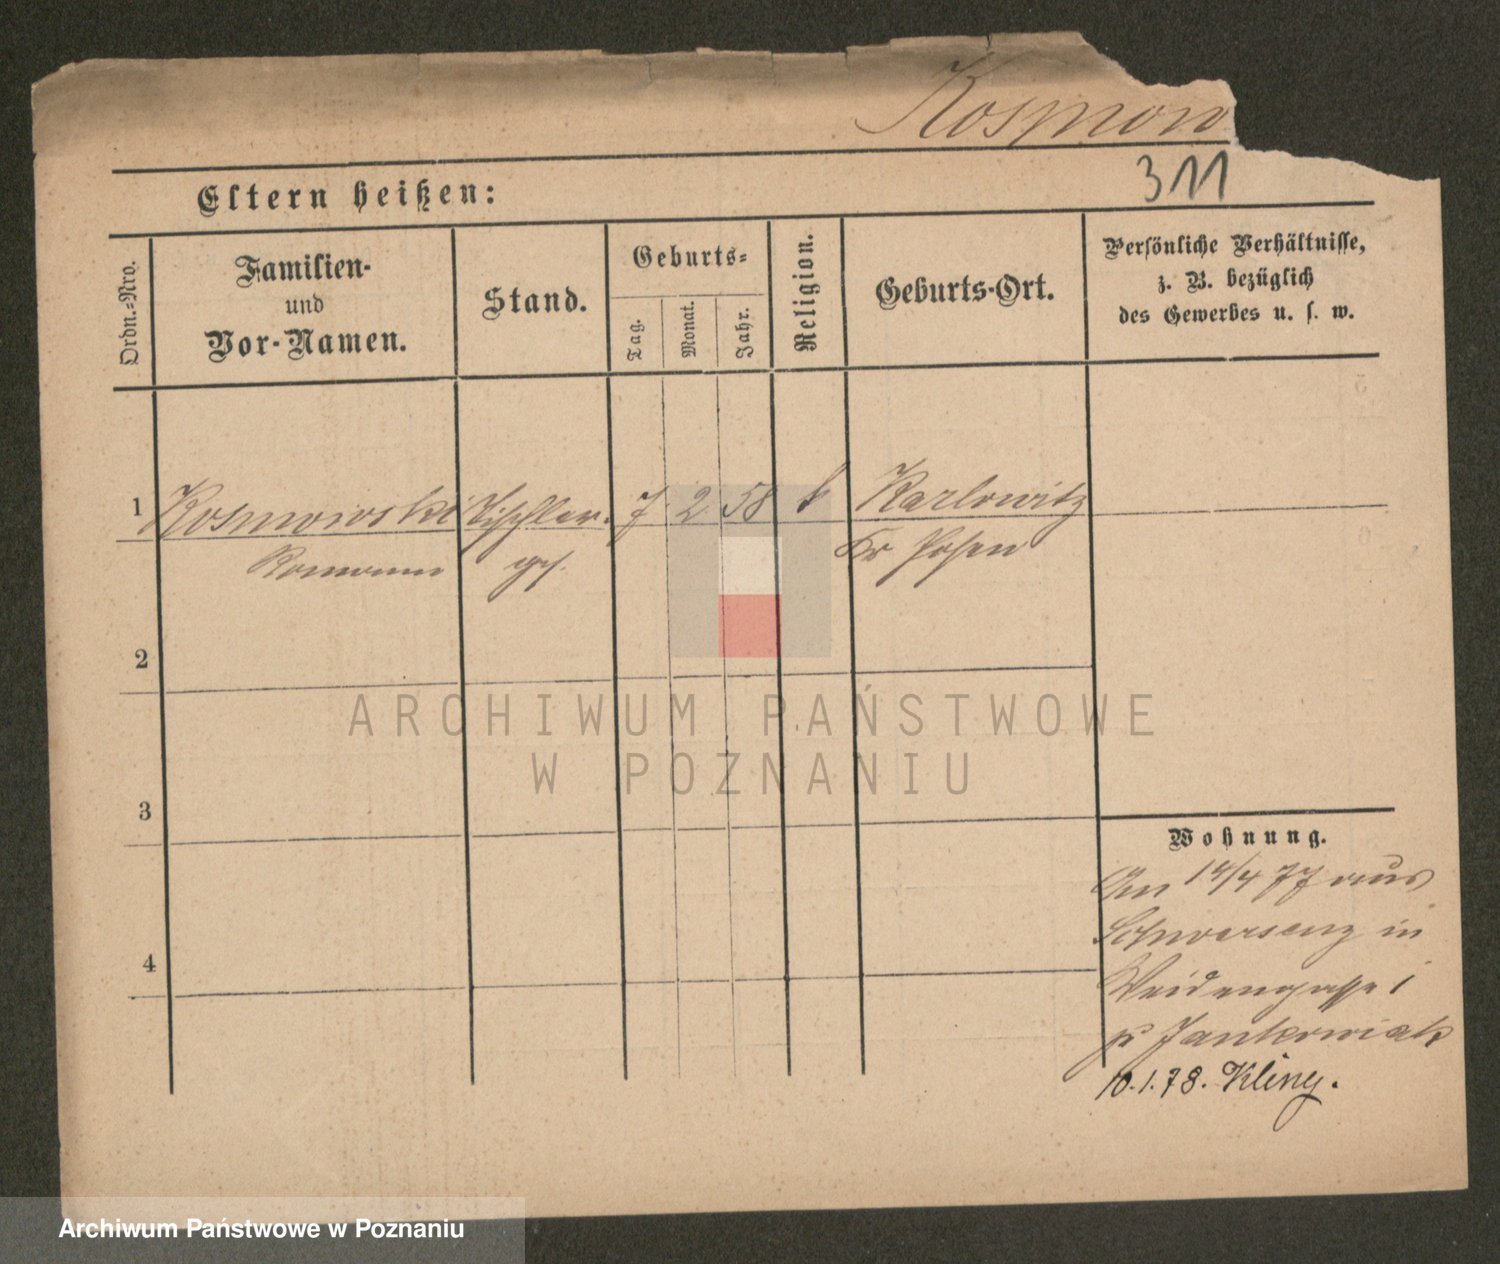 Kosmow
311
Eltern heißen:
Ordn.-Nro.
Familien-
und
Vor-Namen.
Stand.
Geburts-
Tag.
Monat.
Jahr.
Religion.
Geburts-Ort.
Persönliche Verhältnisse,
z. B. bezüglich
des Gewerbes u. s. w.
1 Kosmowski Tischler. 7 2 58 k Karlowitz
Roman ges. Kr Posen
2
3
4
Wohnung.
Am 14/4 77 aus
Schwersenz in
Weidengasse 1
p Jankowiak
10.1.78. Kling.
ARCHIWUM PAŃSTWOWE
W POZNANIU
Archiwum Państwowe w Poznaniu